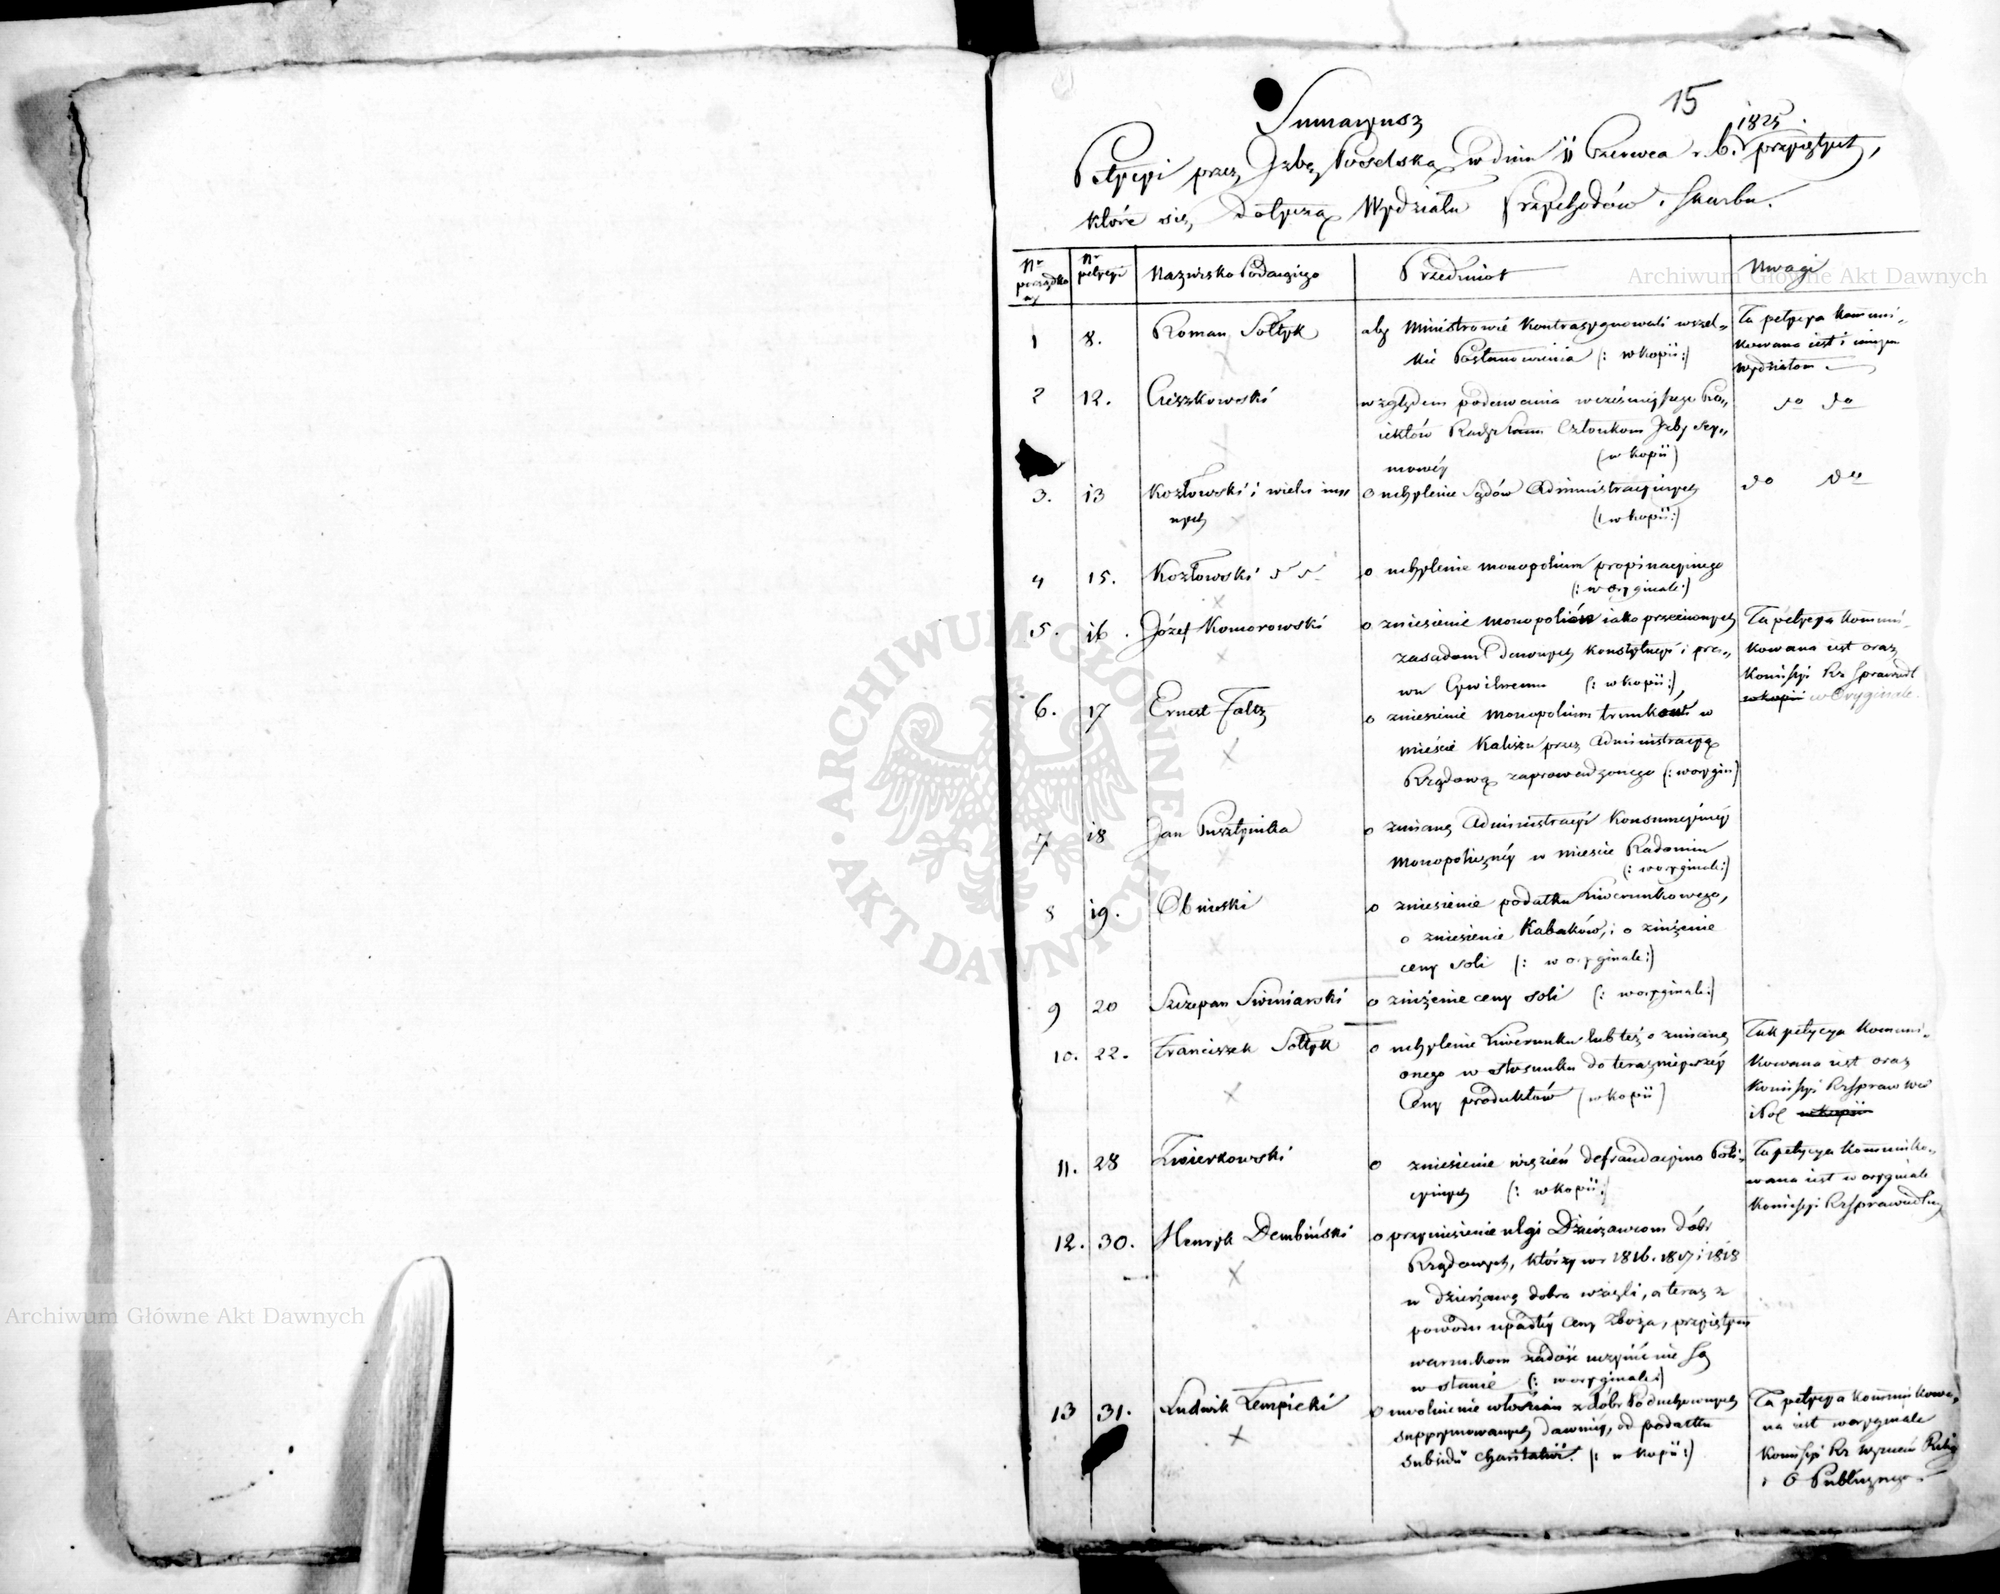 15
Sumaryusz
1825.
Petycyi przez Izbę Poselską w dniu 11 Czerwca r. b. przyjętych,
które się dotyczą Wydziału Przychodów i Skarbu.
Nr porządkowy
Nr petycyi
Nazwisko Podaiącego
Przedmiot
Uwagi
1 8. Roman Sołtyk aby Ministrowie kontrasygnowali wszel-
kie Postanowienia (: w kopii :)
Ta petycya kommuni-
kowana iest i innym
Wydziałom
2 12. Cieszkowski względem podawania wcześniejszego Pro-
iektów Rządowych Członkom Izby Sey-
mowéy (w kopii)
do do
3. 13 Kozłowski i wielu in-
nych
o uchylenie Sądów Administracyinych
(: w kopii :)
do do
4 15. Kozłowski o uchylenie monopolium propinacyinego
(: w oryginale :)
5. 16. Józef Komorowski o zniesienie monopoliów iako przeciwnych
zasadom dawnych konstytucyi i pra-
wu Cywilnemu (: w kopii :)
Ta petycya kommuni-
kowana iest oraz
Kommissyi Rz Sprawiedl
w kopii w Oryginale.
6. 17 Ernest Faltz o zniesienie monopolium trunków w
mieście Kaliszu przez Administracyą
Rządową zaprowadzonego (: w orygin :)
7 18 Jan Pusztynika o zmianę Administracyi Konsumcyinéy
Monopoliczney w mieście Radomiu
(: w oryginale :)
8 19. Obniski o zniesienie podatku Liwerunkowego,
o zniesienie Kabaków, i o zniżenie
ceny soli (: w oryginale :)
9 20 Szczepan Swiniarski o zniżenie ceny soli (: w oryginale :)
10. 22. Franciszek Sołtyk o uchylenie Liwerunku lub też o zmianę
onego w stosunku do teraznieyszéy
Ceny produktów (w kopii)
Tak petycya kommuni-
kowana iest oraz
Kommissyi Rz Spraw We
i Pol w kopii
11. 28 Zwierkowski o zniesienie więzień defraudacyino Poli-
cyinych (: w kopii :)
Ta petycya kommuniko-
wana iest w oryginale
Kommissyi Rz Sprawiedliw
12. 30. Henryk Dembiński o przyniesienie ulgi Dzierżawcom dóbr
Rządowych, którzy w r 1816. 1817 i 1818
w dzierżawę dobra wzięli, a teraz z
powodu upadłéy Ceny Zboża, przyjętym
warunkom zadość uczynić nie są
w stanie (: w oryginale :)
13 31. Ludwik Łempicki o uwolnienie włościan z dóbr Poduchownych
supprymowanych dawniéy, od podatku
Subsidii Charitativi. (: w kopii :)
Ta petycya kommunikowa-
na iest w oryginale
Kommissyi Rz Wyznań Relig
i O Publicznego
Archiwum Główne Akt Dawnych
Archiwum Główne Akt Dawnych
· ARCHIWUM GŁÓWNE · AKT DAWNYCH